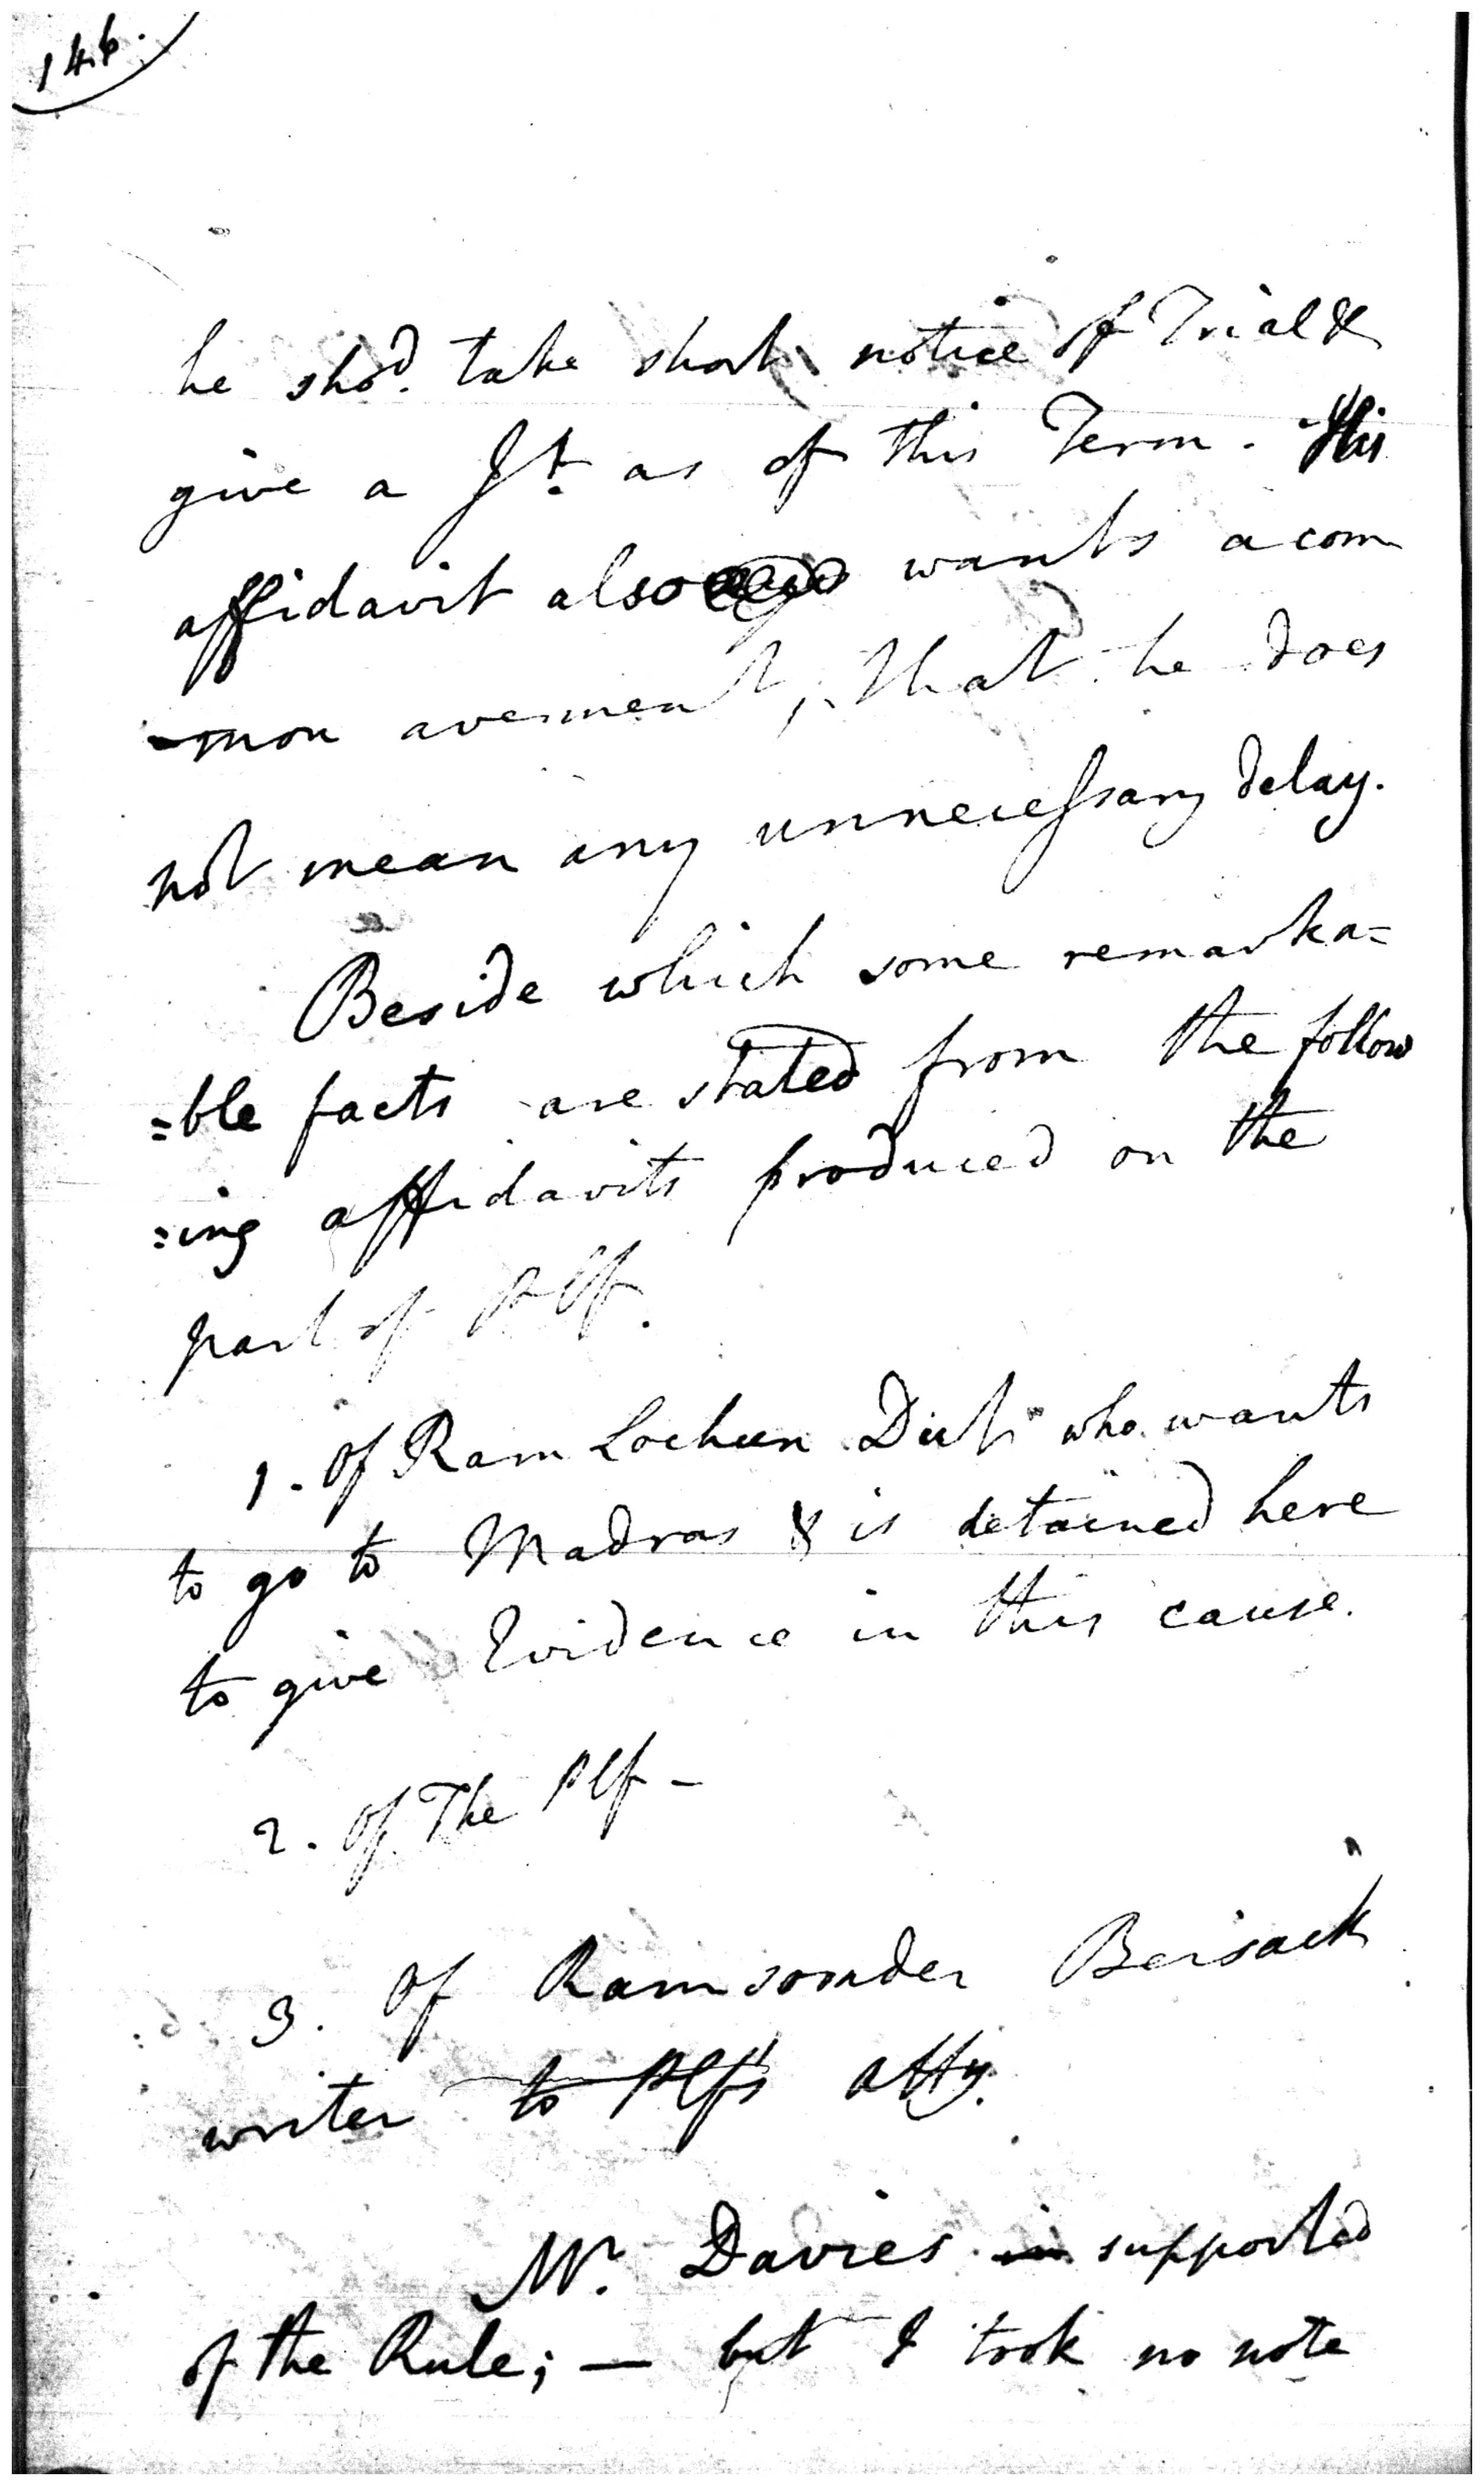 146.
he shod. take short notice of Trial &
give a Jt. as of this Term. His
affidavit also wants a com
-mon averment, that he does
not mean any unnecessary delay.
Beside which some remarka=
=ble facts are stated from the follow
=ing affidavits produced on the
part of Plf.
1. Of Ram Lochun Dutt who wants
to go to Madras & is detained here
to give Evidence in this cause.
2. Of The Plf -
3. Of Ramsonder Beisack
writer to Plf's Atty.
Mr. Davies in supported
of the Rule; — but I took no note